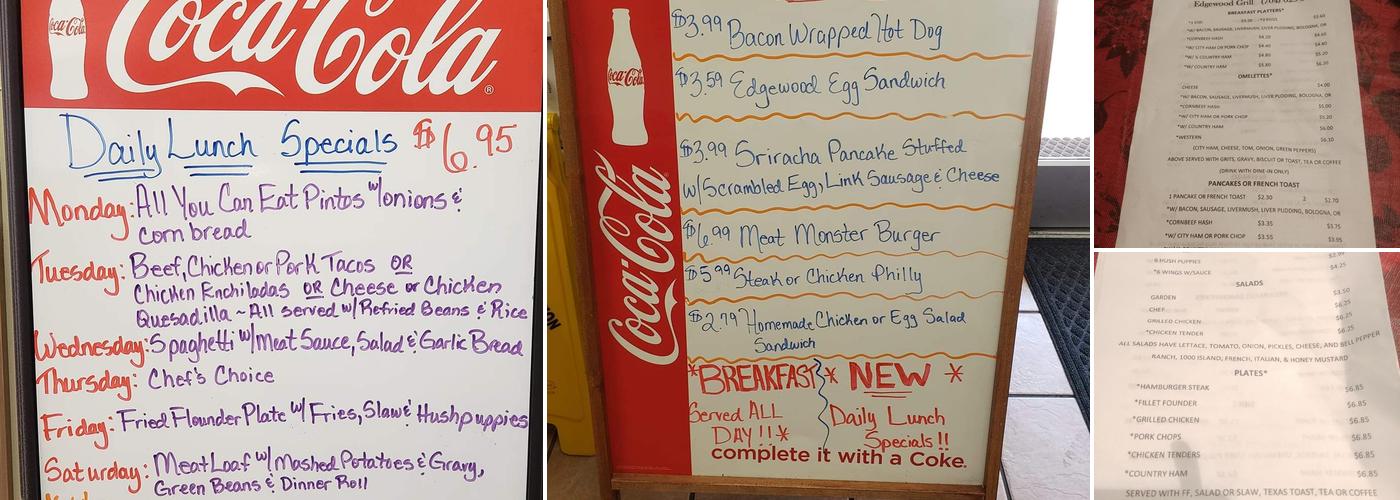 Coca-Cola
Coca-Cola®
Daily Lunch Specials $6.95
Monday: All You Can Eat Pintos w/onions &
Corn bread
Tuesday: Beef, Chicken or Pork Tacos OR
Chicken Enchiladas OR Cheese or Chicken
Quesadilla ~ All served w/Refried Beans & Rice
Wednesday: Spaghetti w/Meat Sauce, Salad & Garlic Bread
Thursday: Chef's Choice
Friday: Fried Flounder Plate w/ Fries, Slaw & Hushpuppies
Saturday: Meat Loaf w/Mashed Potatoes & Gravy,
Green Beans & Dinner Roll
Coca-Cola
Coca-Cola
$3.99 Bacon Wrapped Hot Dog
$3.59 Edgewood Egg Sandwich
$3.99 Sriracha Pancake Stuffed
w/Scrambled Egg, Link Sausage & Cheese
$6.99 Meat Monster Burger
$5.99 Steak or Chicken Philly
$2.79 Homemade Chicken or Egg Salad
Sandwich
*BREAKFAST*
Served ALL
DAY!!*
NEW *
Daily Lunch
Specials!!
complete it with a Coke.
Edgewood Grill (704)
BREAKFAST PLATTERS*
*1 EGG
*W/ BACON, SAUSAGE, LIVERMUSH, LIVER PUDDING, BOLOGNA, OR
*CORNBEEF HASH $4.20
*W/ CITY HAM OR PORK CHOP $4.40
*W/ ½ COUNTRY HAM $4.80
*W/ COUNTRY HAM $5.80
OMELETTES*
CHEESE $4.00
*W/ BACON, SAUSAGE, LIVERMUSH, LIVER PUDDING, BOLOGNA, OR
*CORNBEEF HASH $5.00
*W/ CITY HAM OR PORK CHOP $5.20
*W/ COUNTRY HAM $6.00
*WESTERN $6.10
(CITY HAM, CHEESE, TOM, ONION, GREEN PEPPERS)
ABOVE SERVED WITH GRITS, GRAVY, BISCUIT OR TOAST, TEA OR COFFEE
(DRINK WITH DINE-IN ONLY)
PANCAKES OR FRENCH TOAST
1 PANCAKE OR FRENCH TOAST $2.30 2 $2.70
*W/ BACON, SAUSAGE, LIVERMUSH, LIVER PUDDING, BOLOGNA, OR
*CORNBEEF HASH $3.35 $3.75
*W/ CITY HAM OR PORK CHOP $3.55 $3.95
HUSH PUPPIES
*6 WINGS W/SAUCE $4.25
SALADS
GARDEN $3.50
CHEF $6.25
GRILLED CHICKEN $6.25
*CHICKEN TENDER $6.25
ALL SALADS HAVE LETTACE, TOMATO, ONION, PICKLES, CHEESE, AND BELL PEPPER
RANCH, 1000 ISLAND, FRENCH, ITALIAN, & HONEY MUSTARD
PLATES*
*HAMBURGER STEAK $6.85
*FILLET FOUNDER $6.85
*GRILLED CHICKEN $6.85
*PORK CHOPS $6.85
*CHICKEN TENDERS $6.85
*COUNTRY HAM $6.85
SERVED WITH FF, SALAD OR SLAW, TEXAS TOAST, TEA OR COFFEE